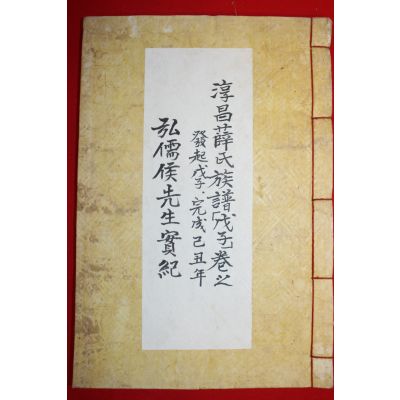 淳昌薛氏族譜「戊子」卷之
發起戊子、完成己丑年
弘儒侯先生實紀